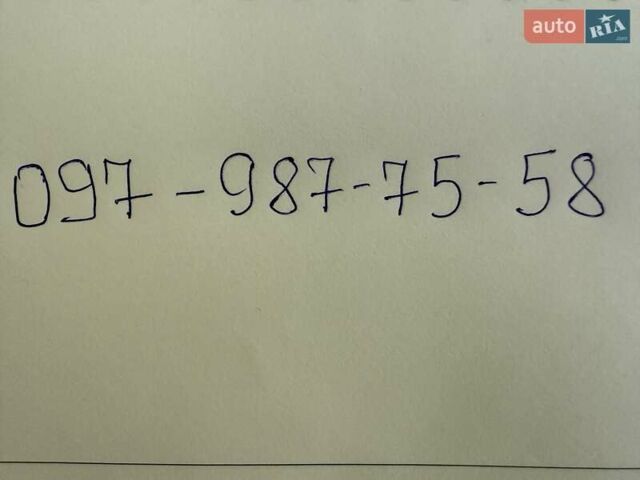 auto RIA.com
097-987-75-58